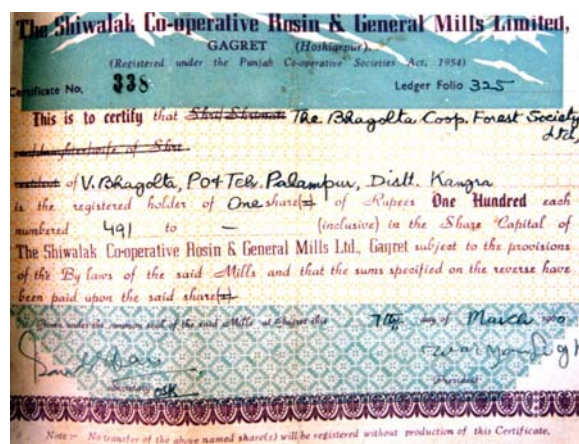 The Shiwalak Co-operative Rosin & General Mills Limited,
GAGRET (Hoshiarpur).
(Registered under the Punjab Co-operative Societies Act, 1954)
Certificate No. 338 Ledger Folio 325
This is to certify that Shri/Shrimati The Bhagolta Coop. Forest Society Ltd,
son/daughter/wife of Shri
resident of V. Bhagolta, PO & Teh. Palampur, Distt. Kangra
is the registered holder of One share(s) of Rupees One Hundred each
numbered 491 to — (inclusive) in the Share Capital of
The Shiwalak Co-operative Rosin & General Mills Ltd., Gagret subject to the provisions
of the By laws of the said Mills and that the sums specified on the reverse have
been paid upon the said share(s)
Given under the common seal of the said Mills at Gagret this 7th day of March 1960
Secretary President
Note :- No transfer of the above named share(s) will be registered without production of this Certificate.